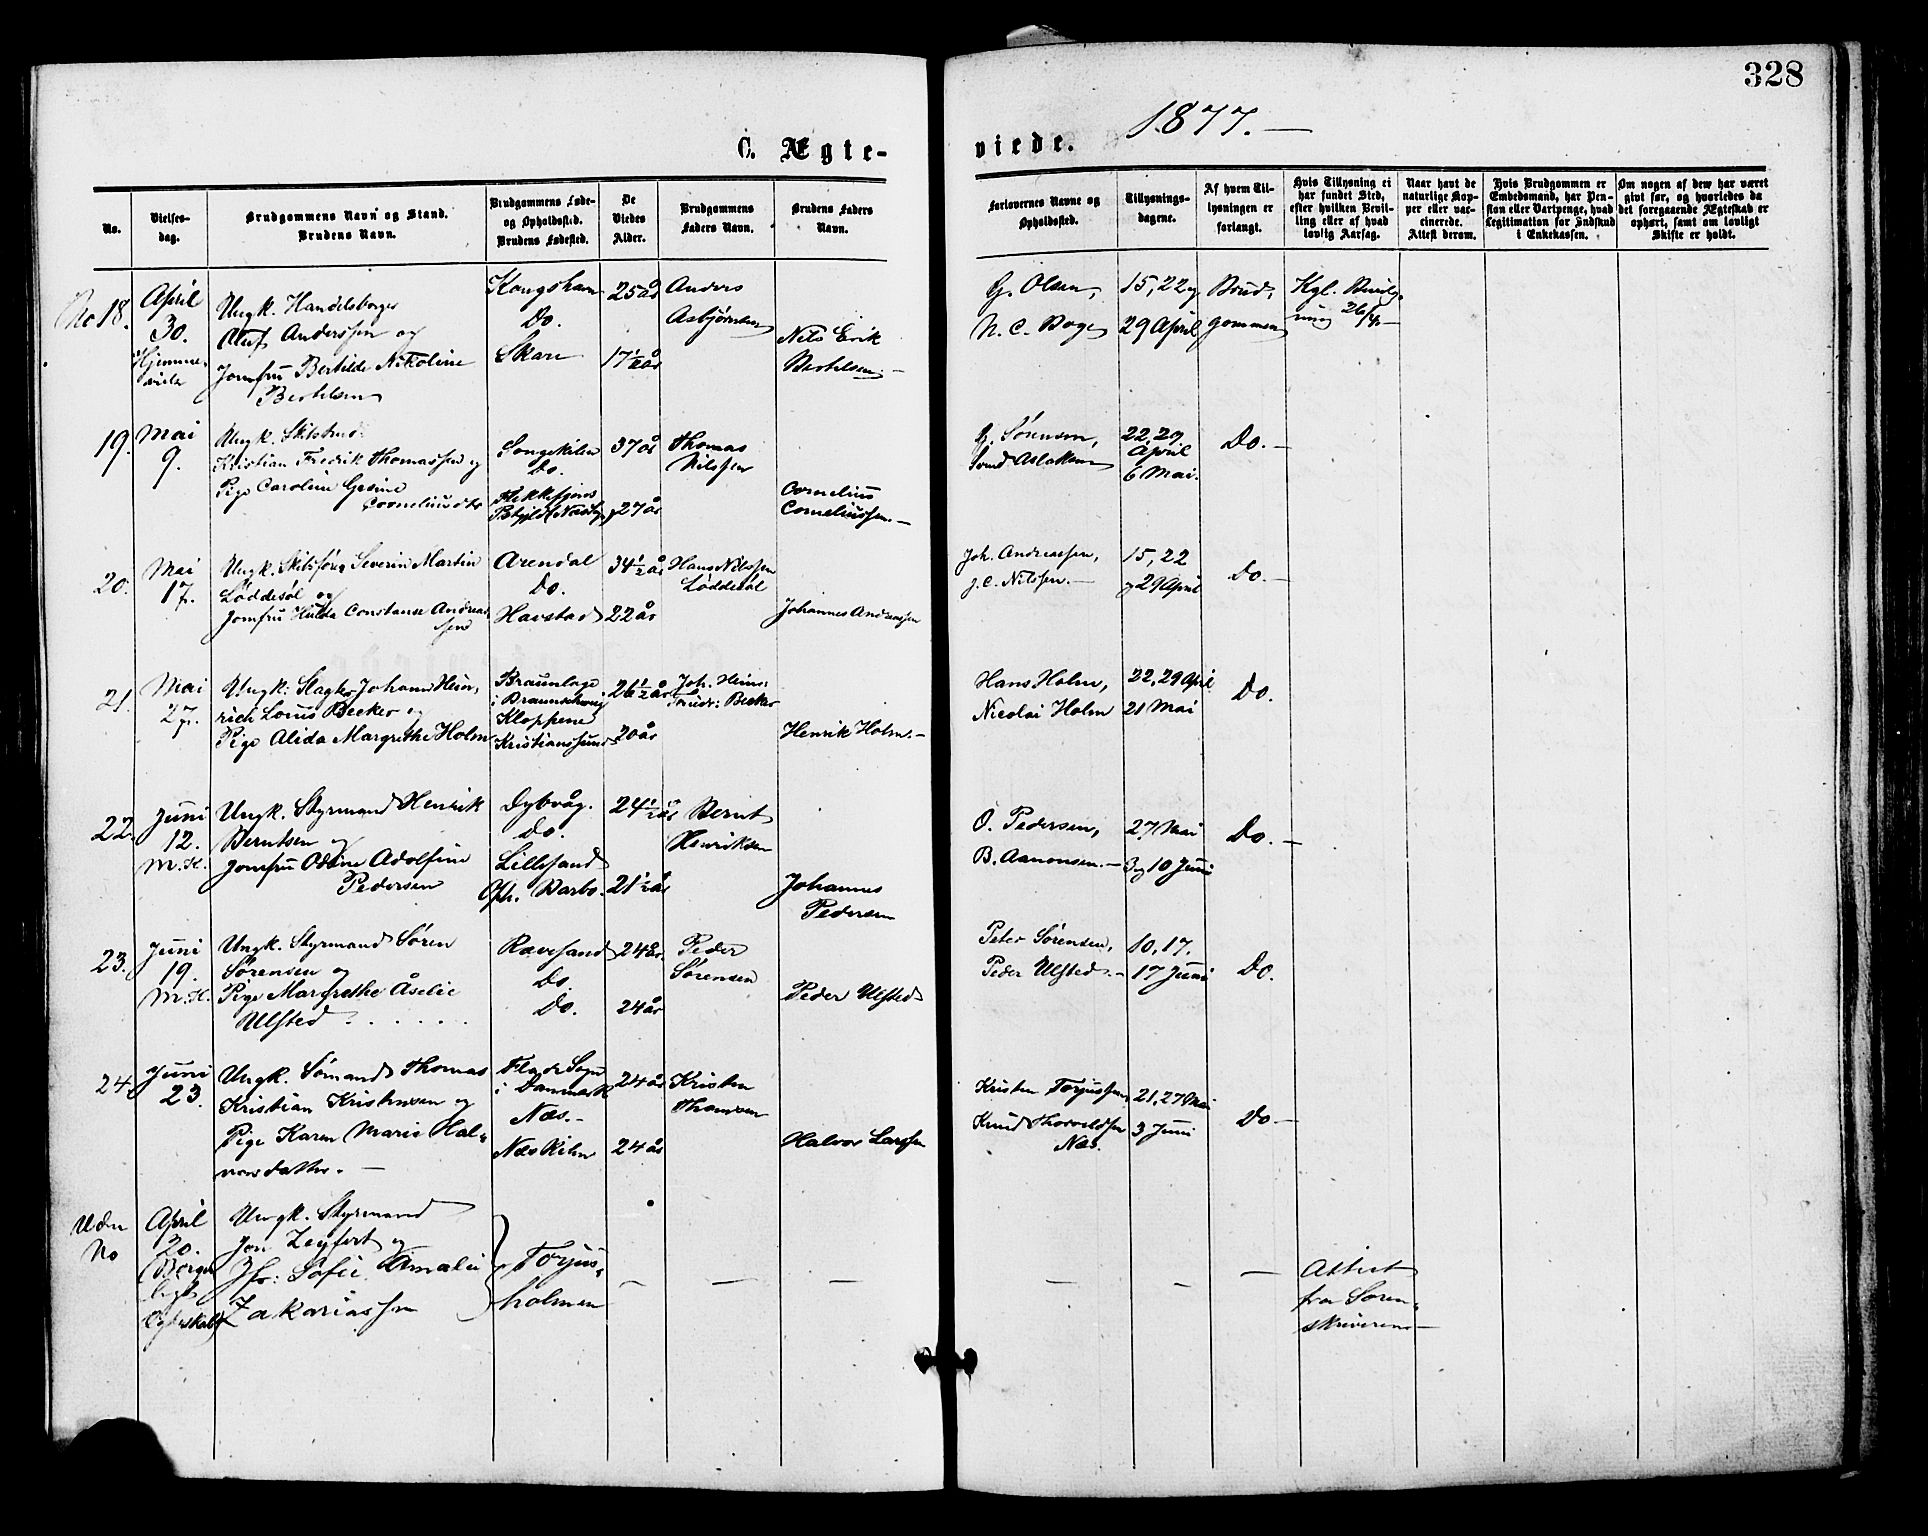 328
1877.—
C. Ægte-
viede.
No.
Vielses-
dag.
Brudgommens Navn og Stand.
Brudens Navn.
Brudgommens Føde-
og Opholdssted.
Brudens Fødested.
De
Viedes
Alder.
Brudgommens
Faders Navn.
Brudens Faders
Navn.
Forlovernes Navne og
Opholdssted.
Tillysnings-
dagene.
Af hvem Til-
lysningen er
forlangt.
Hvis Tillysning ei
har fundet Sted,
efter hvilken Bevil-
ling eller af hvad
lovlig Aarsag.
Naar havt de
naturlige Kop-
per eller vac-
cinerede.
Attest derom.
Hvis Brudgommen er
Embedsmand, har Pen-
sion eller Vartpenge, hvad
Legitimation for Indskud
i Enkekassen.
Om nogen af dem har været
gift før, og hvorledes da
det foregaaende Ægteskab er
ophørt, samt om lovligt
Skifte er holdt.
No 18.
April
30.
Hjemme-
viede
Ungk. Handelsborger
Oluf Anderssen og
Jomfru Berthilde Nikoline
Berthelsen
Kongshavn
Do.
Skare
25 år
17 1/2 år
Anders
Asbjørnsen
Nils Erik
Berthelsen.—
G. Olsen,
N. C. Boge
15, 22 og
29 April
Brud-
gommen
Kgl. Bevilg-
ning 26/4—
19.
Mai
9.
Ungk. Skibstmd.
Kristian Fredrik Thomassen og
Pige Caroline Gesine
Corneliusdtr
Songekilen
Do.
Flekkefjord
37 år
27 år
Thomas
Nilssen
Cornelius
Corneliussen.—
G. Sørensen,
Svend Aslaksen
22, 29
April
6 Mai.
Do.—
20.
Mai
17.
Ungk. Skibsfører Severin Martin
Løddesøl og
Jomfru Hulda Constanse Andreas-
sen
Arendal
Do.
Havstad
34 1/2 år
22 år
Hans Nilssen
Løddesøl
Johannes Andreassen
Joh. Andreassen,
J. C. Nilssen.—
15, 22
og 29 April
Do.—
21.
Mai
27.
Ungk: Slagter Johann Hein-
rich Louis Becker og
Pige Alida Margrethe Holm
Braunlage
i Braunschweig
Kloppene
Kristianssund
26 1/2 år
20 år
Joh. Heinr.
Friedr: Becker
Henrik Holm.—
Hans Holm,
Nicolai Holm
22, 29 April
21 Mai
Do.
22.
Juni
12.
M. K.
Ungk. Styrmand Henrik
Berntsen og
Jomfru Odine Adolfine
Pedersen
Dybvåg.
Do.
Lillesand
Oph. Barbo.
24 1/2 år
21 1/2 år
Bernt
Henriksen
Johannes
Pedersen
O. Pedersen,
B. Aanonsen.—
27 Mai
3 og 10 Juni
Do.—
23.
Juni
19.
M. K.
Ungk. Styrmand Søren
Sørensen og
Pige Margrethe Åselie
Ulsted . . . . . .
Rævesand
Do.
Do.
24 år.
24 år
Peder
Sørensen
Peder Ulsted
Peter Sørensen,
Peder Ulsted.—
10, 17.
17 Juni
Do.
24.
Juni
23.
Ungk. Sømand Thomas
Kristian Kristensen og
Pige Karen Marie Hal-
vorsdatter.—
Flade Sogn
i Danmark
Næs.—
Næskilen
24 år
24 år
Kristen
Thomsen
Halvor Larssen
Kristen Torjussen,
Knud Thorvaldsen
Næs.
21, 27 Mai
3 Juni
Do—
Uden
No
April
20.
Borger-
ligt
Ægteskab
Ungk. Styrmand
Jon Zeyfert og
Jfr: Sofie Amalie
Zakariassen
Torjus-
holmen
—
—
—
—
—
—
Attest
fra Soren-
skriveren—